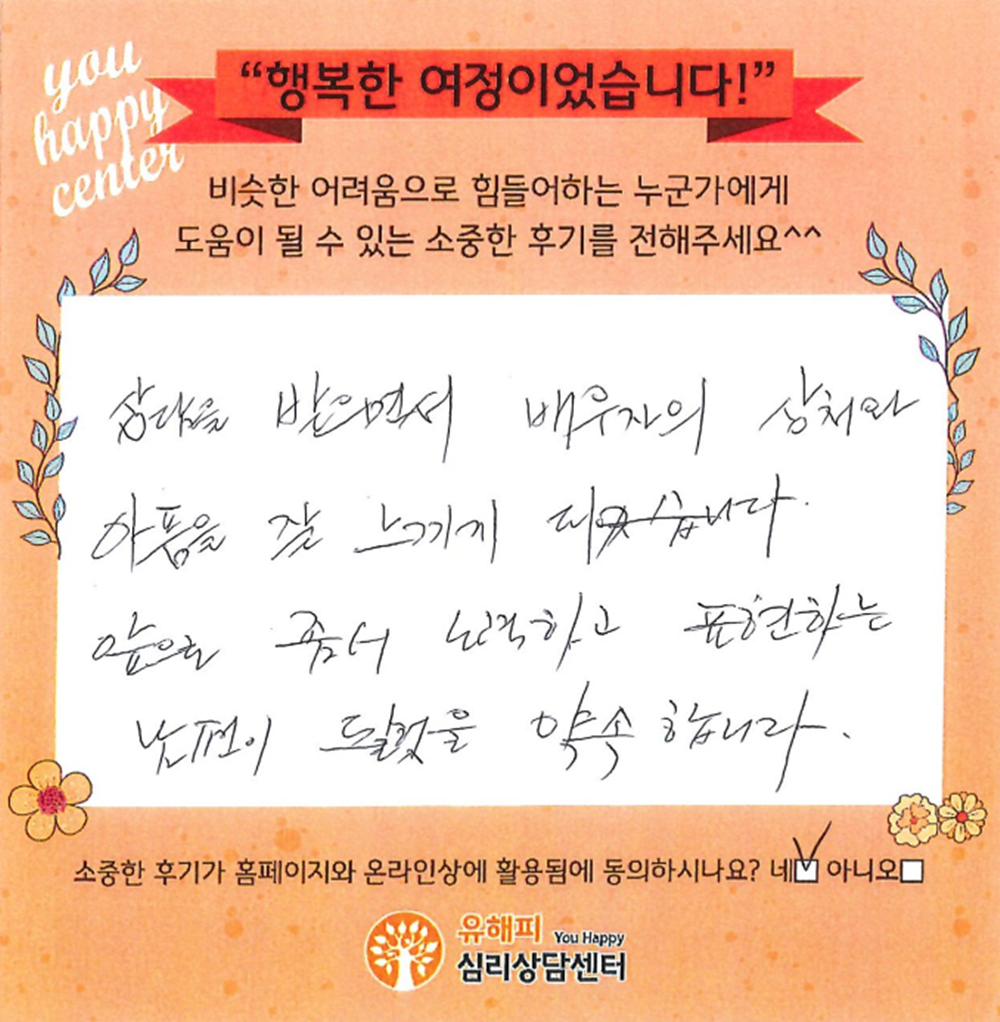 you
happy
center
“행복한 여정이었습니다!”
비슷한 어려움으로 힘들어하는 누군가에게
도움이 될 수 있는 소중한 후기를 전해주세요^^
상담을 받으면서 배우자의 상처와
아픔을 잘 느끼게 되었습니다.
앞으로 좀더 노력하고 표현하는
남편이 될것을 약속 합니다.
소중한 후기가 홈페이지와 온라인상에 활용됨에 동의하시나요? 네 아니오
유해피 You Happy
심리상담센터